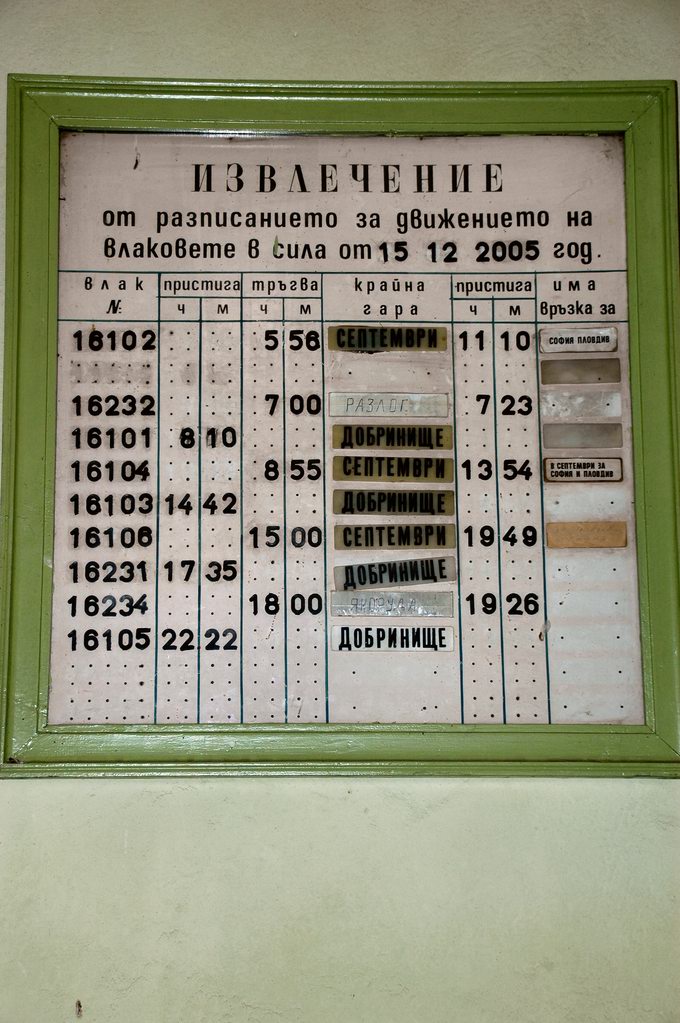 ИЗВЛЕЧЕНИЕ
от разписанието за движението на
влаковете в сила от 15 12 2005 год.
влак пристига тръгва крайна пристига има
№ ч м ч м гара ч м връзка за
16102 5 56 СЕПТЕМВРИ 11 10 СОФИЯ ПЛОВДИВ
16232 7 00 РАЗЛОГ 7 23
16101 8 10 ДОБРИНИЩЕ
16104 8 55 СЕПТЕМВРИ 13 54 В СЕПТЕМВРИ ЗА
СОФИЯ И ПЛОВДИВ
16103 14 42 ДОБРИНИЩЕ
16106 15 00 СЕПТЕМВРИ 19 49
16231 17 35 ДОБРИНИЩЕ
16234 18 00 ЯКОРУДА 19 26
16105 22 22 ДОБРИНИЩЕ